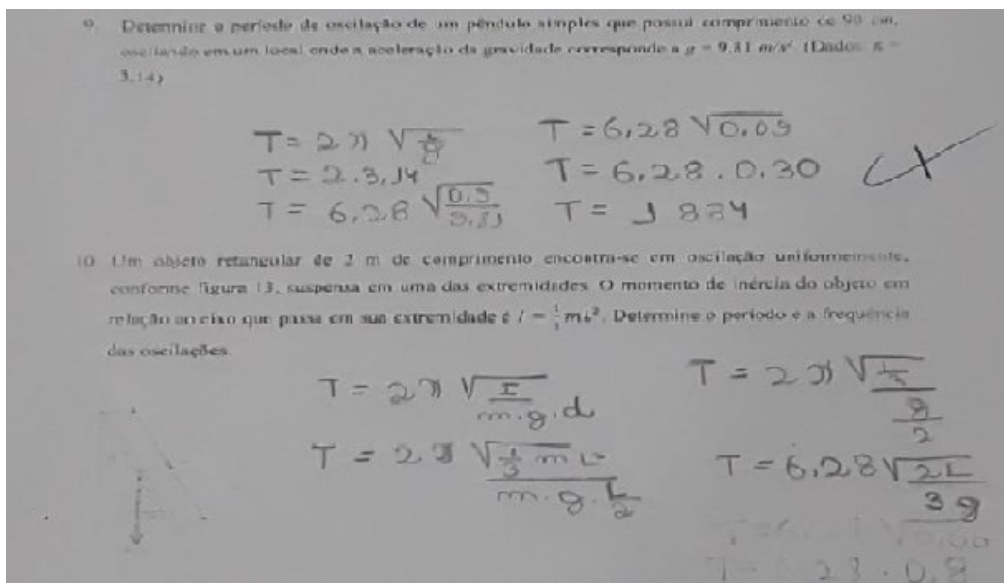 9. Determine o período de oscilação de um pêndulo simples que possui comprimento de 90 cm,
oscilando em um local onde a aceleração da gravidade corresponde a g = 9.81 m/s². (Dados π =
3.14)
T = 2π √(L/g)
T = 2.3,14
T = 6,28 √(0,9/9,81)
T = 6,28 √0,09
T = 6,28 . 0,30
T = 1 884
10. Um objeto retangular de 2 m de comprimento encontra-se em oscilação uniformemente,
conforme figura 13, suspensa em uma das extremidades. O momento de inércia do objeto em
relação ao eixo que passa em sua extremidade é I = 1/3 mL². Determine o período e a frequência
das oscilações.
T = 2π √(I/m.g.d)
T = 2π √(1/3 mL²/m.g.L/2)
T = 2π √(L/3/g/2)
T = 6,28 √(2L/3g)